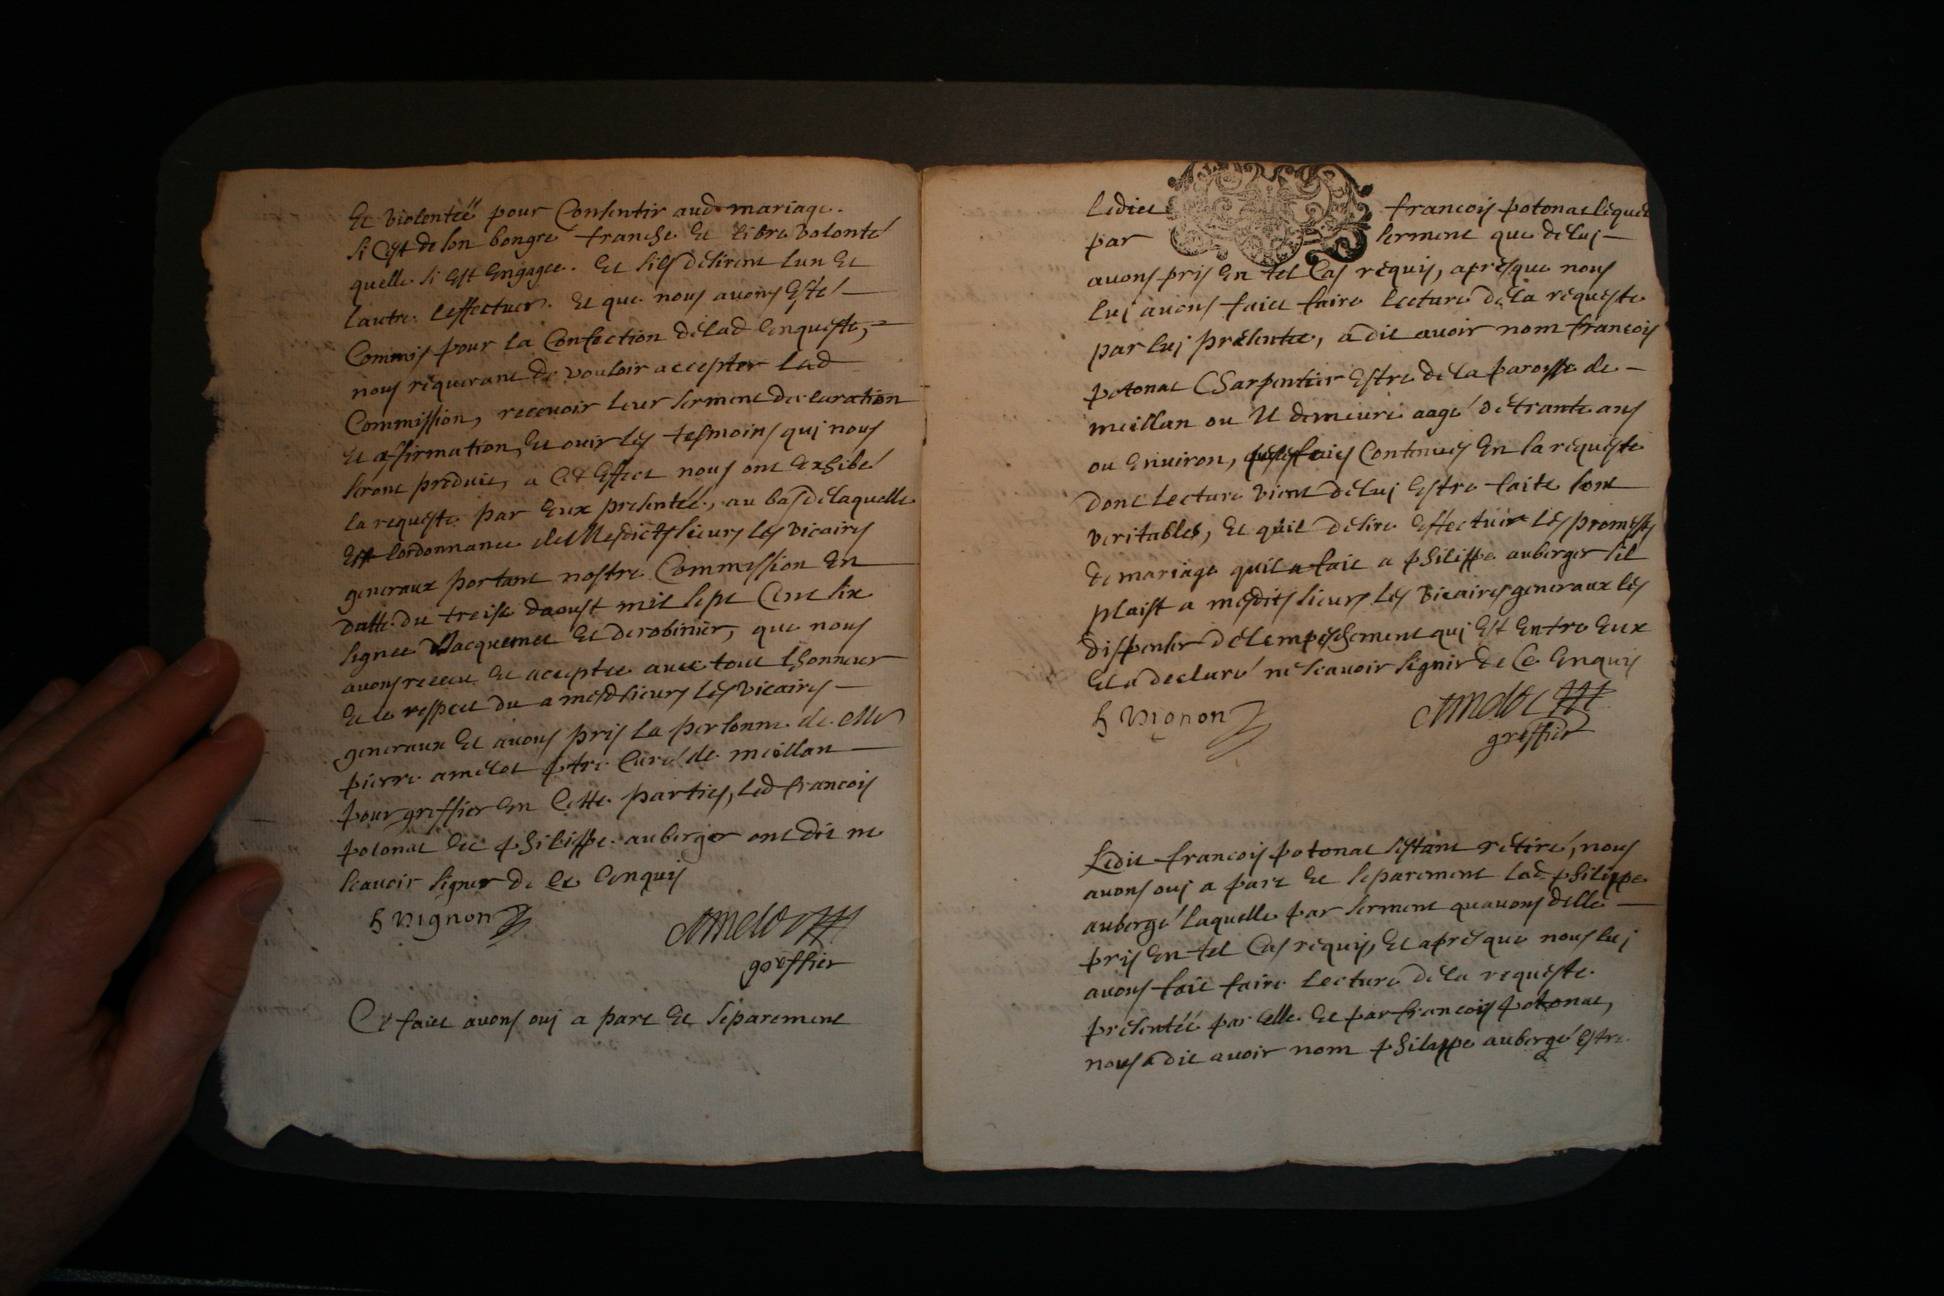 Et violenteé pour Consentir aud mariage.
si Cest de son bongré franche Et libre volonté
quelle si Est Engagee. Et sils desirent lun Et
lautre leffectuer. Et que nous avons Esté
Commis pour la Confection de lad Enqueste,
nous requerant de vouloir accepter lad
Commission, recevoir leur serment declaration
et affirmation, Et ouir les tesmoins qui nous
seront produit, a Cet Effect nous ont Exhibé
la requeste par Eux presentée, au bas de laquelle
Est lordonnance de Mesdicts sieurs les vicaires
generaux portant nostre Commission En
datte du treise daoust mil sept Cent six
signee Jacquemet Et derobinier, que nous
avons receu Et acceptee avec tout lhonneur
Et le respect du a mesd sieurs les vicaires
generaux Et avons pris la personne de Mre
pierre amelot ptre Curé de meillan
pour greffier En Cette parties, led francois
potonat Et philippe auberger ont dit ne
scavoir signer de Ce Enquis
h vignon
Amelot
greffier
Ce faict avons oui a part Et séparement
Ledict francois potonat lequel
par serment que de luj
avons pris En tel Cas requis, apres que nous
luj avons faict faire lecture de la requeste
par luj présentee, a dit avoir nom francois
potonat Charpentier Estre de la paroisse de
meillan ou Il demeure aagé de trante ans
ou Environ, que les faits Contenues En la requeste
dont lecture vient de luj Estre faite sont
veritables, Et quil desire Effectuer les promesses
de mariage quil a fait a philippe auberger sil
plaist a mesdits sieurs les vicaires generaux les
dispenser de lempeschement qui Est Entre Eux
Et a declaré ne scavoir signer de Ce Enquis
h vignon
Amelot
greffier
Ledit francois potonat sestant retiré, nous
avons oui a part Et separement lad philippe
aubergé laquelle par serment quavons delle
pris En tel Cas requis, Et apres que nous luj
avons fait faire lecture de la requeste
présentéé par elle Et par francois potonat,
nous a dit avoir nom philippe aubergé Estre